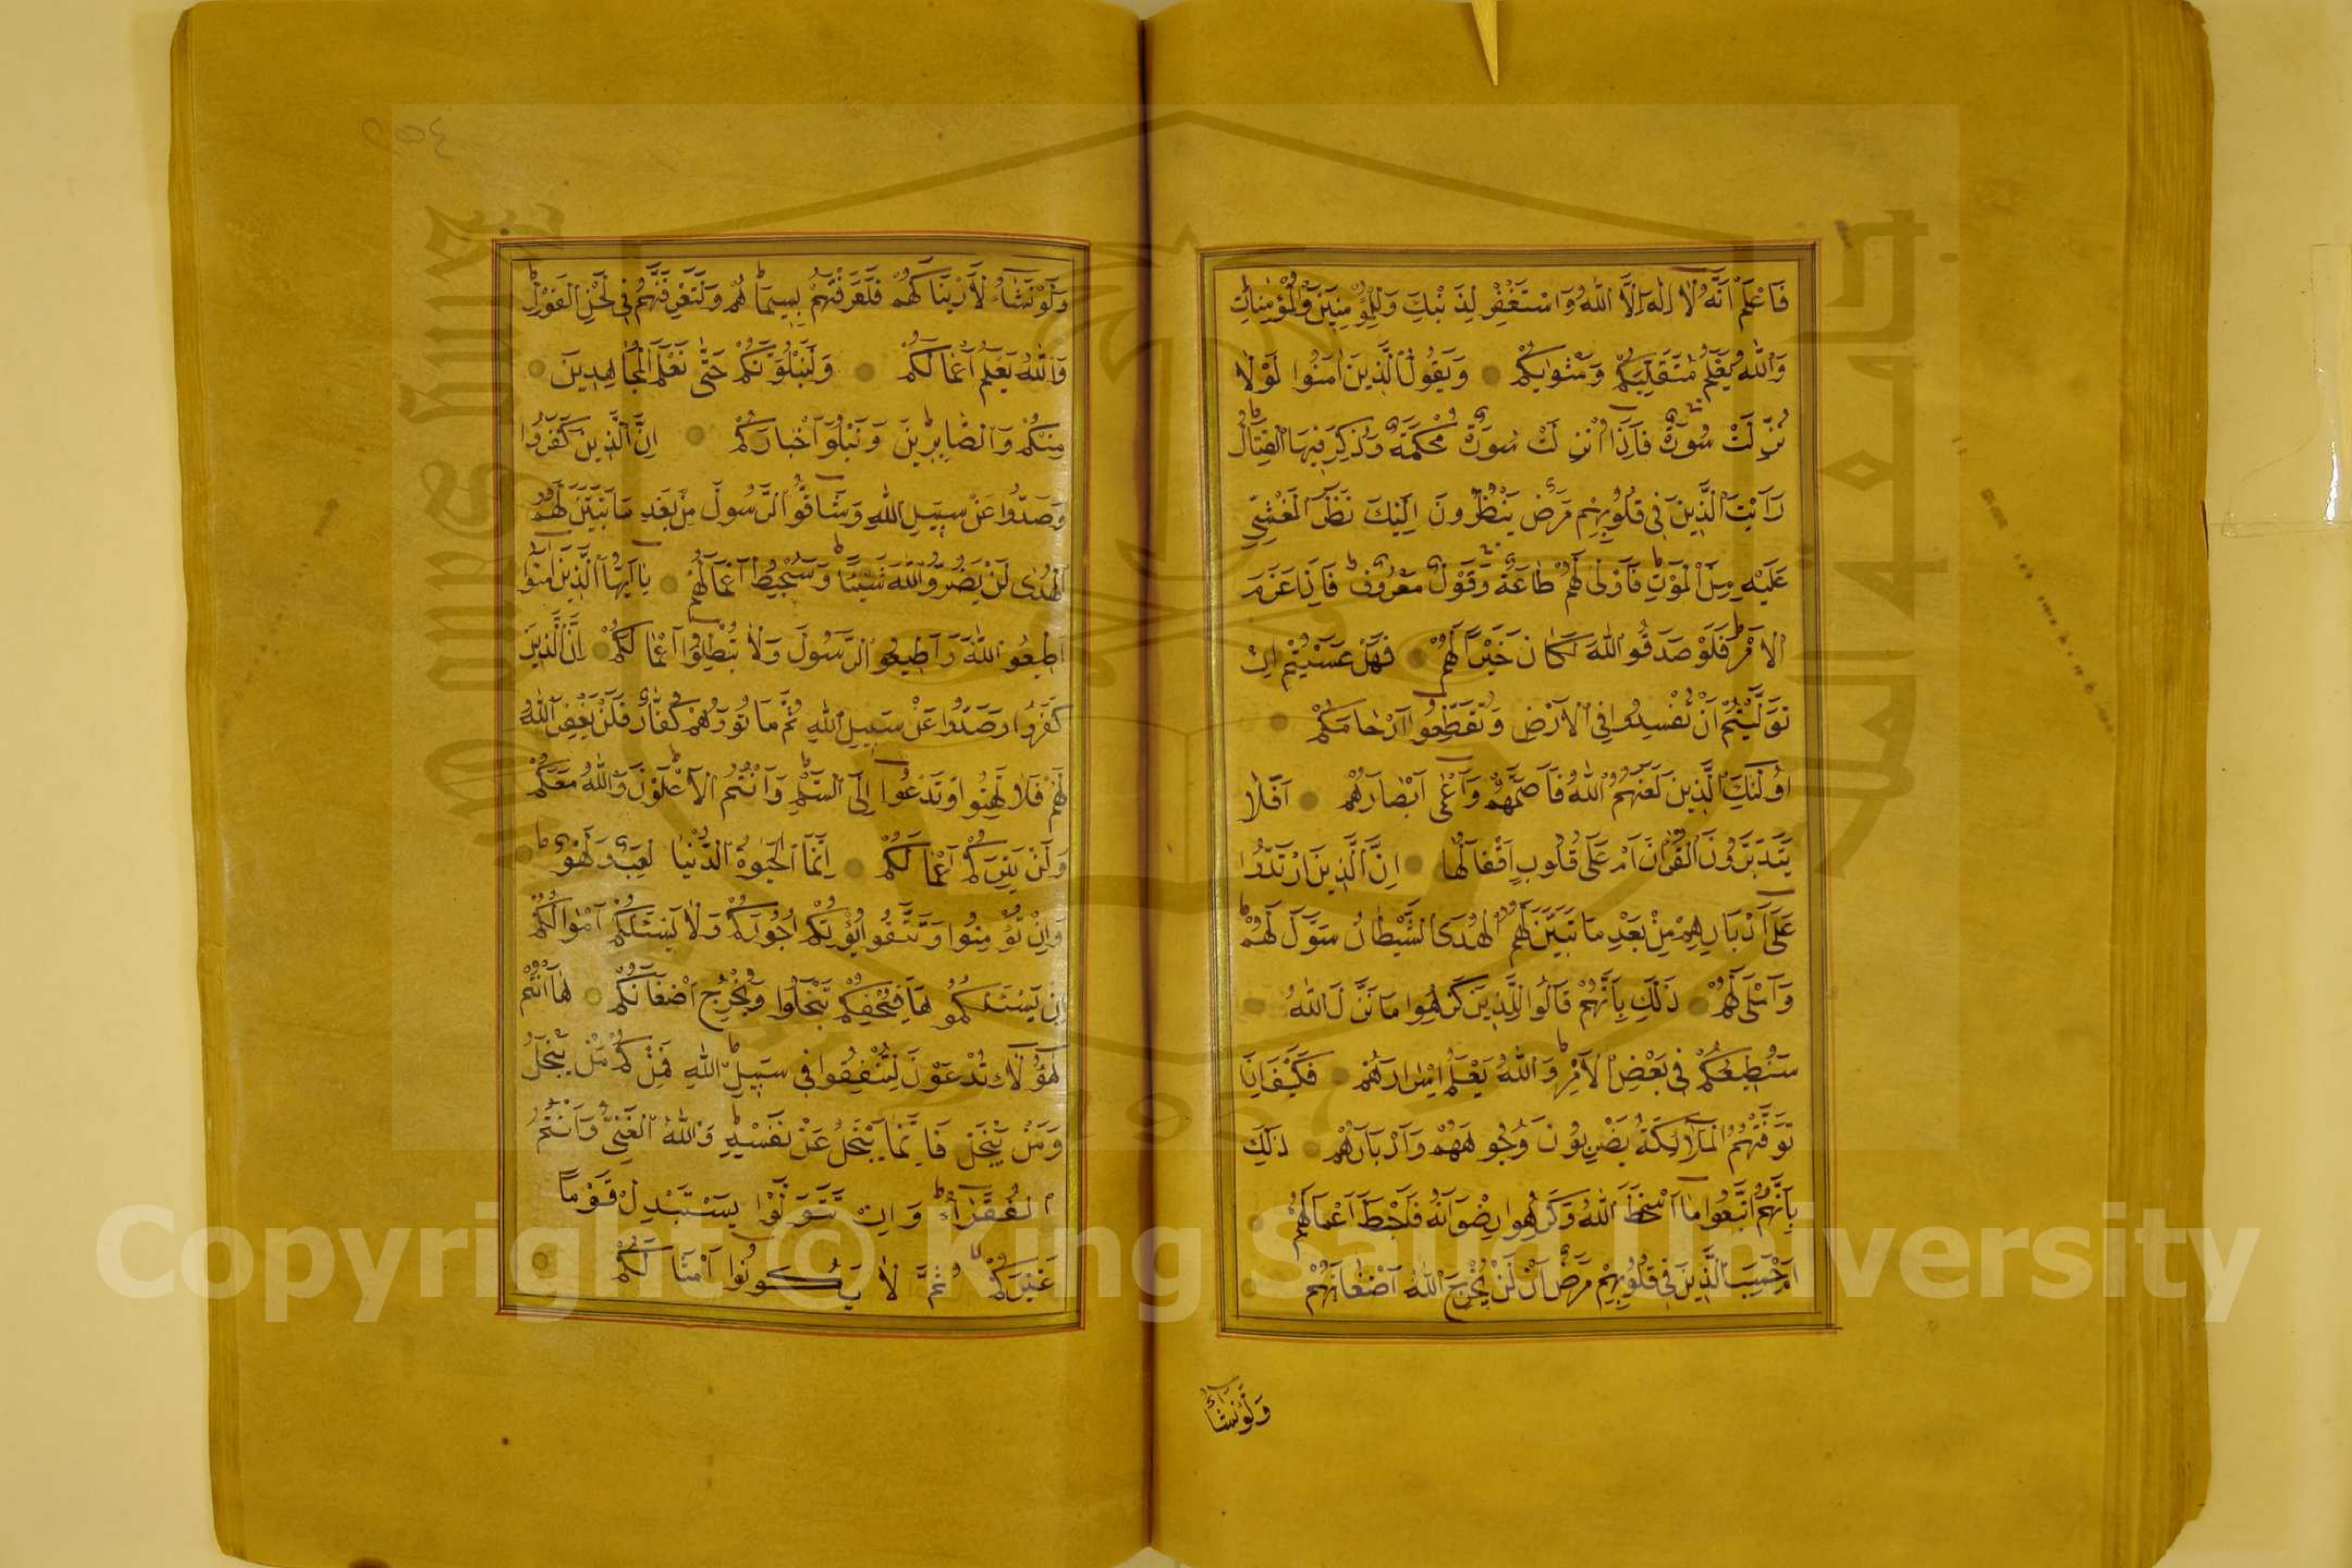 فَاعْلَمْ اَنَّهُ لَا اِلٰهَ اِلَّا اللّٰهُ وَاسْتَغْفِرْ لِذَنْبِكَ وَلِلْمُؤْمِنِينَ وَالْمُؤْمِنَاتِ ط
وَاللّٰهُ يَعْلَمُ مُتَقَلَّبَكُمْ وَمَثْوٰيكُمْ وَيَقُولُ الَّذِينَ اٰمَنُوا لَوْلَا
نُزِّلَتْ سُورَةٌ فَاِذَا اُنْزِلَتْ سُورَةٌ مُحْكَمَةٌ وَذُكِرَ فِيهَا الْقِتَالُ
رَاَيْتَ الَّذِينَ فِى قُلُوبِهِمْ مَرَضٌ يَنْظُرُونَ اِلَيْكَ نَظَرَ الْمَغْشِىِّ
عَلَيْهِ مِنَ الْمَوْتِ ط فَاَوْلٰى لَهُمْ طَاعَةٌ وَقَوْلٌ مَعْرُوفٌ ط فَاِذَا عَزَمَ
الْاَمْرُ فَلَوْ صَدَقُوا اللّٰهَ لَكَانَ خَيْرًا لَهُمْ فَهَلْ عَسَيْتُمْ اِنْ
تَوَلَّيْتُمْ اَنْ تُفْسِدُوا فِى الْاَرْضِ وَتُقَطِّعُوا اَرْحَامَكُمْ
اُولٰئِكَ الَّذِينَ لَعَنَهُمُ اللّٰهُ فَاَصَمَّهُمْ وَاَعْمٰى اَبْصَارَهُمْ اَفَلَا
يَتَدَبَّرُونَ الْقُرْاٰنَ اَمْ عَلٰى قُلُوبٍ اَقْفَالُهَا اِنَّ الَّذِينَ ارْتَدُّوا
عَلٰى اَدْبَارِهِمْ مِنْ بَعْدِ مَا تَبَيَّنَ لَهُمُ الْهُدَى الشَّيْطَانُ سَوَّلَ لَهُمْ ط
وَاَمْلٰى لَهُمْ ذٰلِكَ بِاَنَّهُمْ قَالُوا لِلَّذِينَ كَرِهُوا مَا نَزَّلَ اللّٰهُ
سَنُطِيعُكُمْ فِى بَعْضِ الْاَمْرِ ط وَاللّٰهُ يَعْلَمُ اِسْرَارَهُمْ فَكَيْفَ اِذَا
تَوَفَّتْهُمُ الْمَلَائِكَةُ يَضْرِبُونَ وُجُوهَهُمْ وَاَدْبَارَهُمْ ذٰلِكَ
بِاَنَّهُمُ اتَّبَعُوا مَا اَسْخَطَ اللّٰهَ وَكَرِهُوا رِضْوَانَهُ فَاَحْبَطَ اَعْمَالَهُمْ
اَمْ حَسِبَ الَّذِينَ فِى قُلُوبِهِمْ مَرَضٌ اَنْ لَنْ يُخْرِجَ اللّٰهُ اَضْغَانَهُمْ
وَلَوْ نَشَاءُ
وَلَوْ نَشَاءُ لَاَرَيْنَاكَهُمْ فَلَعَرَفْتَهُمْ بِسِيمَاهُمْ ط وَلَتَعْرِفَنَّهُمْ فِى لَحْنِ الْقَوْلِ ط
وَاللّٰهُ يَعْلَمُ اَعْمَالَكُمْ وَلَنَبْلُوَنَّكُمْ حَتّٰى نَعْلَمَ الْمُجَاهِدِينَ
مِنْكُمْ وَالصَّابِرِينَ وَنَبْلُوَ اَخْبَارَكُمْ اِنَّ الَّذِينَ كَفَرُوا
وَصَدُّوا عَنْ سَبِيلِ اللّٰهِ وَشَاقُّوا الرَّسُولَ مِنْ بَعْدِ مَا تَبَيَّنَ لَهُمُ
الْهُدٰى لَنْ يَضُرُّوا اللّٰهَ شَيْئًا ط وَسَيُحْبِطُ اَعْمَالَهُمْ يَا اَيُّهَا الَّذِينَ اٰمَنُوا
اَطِيعُوا اللّٰهَ وَاَطِيعُوا الرَّسُولَ وَلَا تُبْطِلُوا اَعْمَالَكُمْ اِنَّ الَّذِينَ
كَفَرُوا وَصَدُّوا عَنْ سَبِيلِ اللّٰهِ ثُمَّ مَاتُوا وَهُمْ كُفَّارٌ فَلَنْ يَغْفِرَ اللّٰهُ
لَهُمْ فَلَا تَهِنُوا وَتَدْعُوا اِلَى السَّلْمِ ط وَاَنْتُمُ الْاَعْلَوْنَ ط وَاللّٰهُ مَعَكُمْ
وَلَنْ يَتِرَكُمْ اَعْمَالَكُمْ اِنَّمَا الْحَيٰوةُ الدُّنْيَا لَعِبٌ وَلَهْوٌ ط
وَاِنْ تُؤْمِنُوا وَتَتَّقُوا يُؤْتِكُمْ اُجُورَكُمْ وَلَا يَسْئَلْكُمْ اَمْوَالَكُمْ
اِنْ يَسْئَلْكُمُوهَا فَيُحْفِكُمْ تَبْخَلُوا وَيُخْرِجْ اَضْغَانَكُمْ هَا اَنْتُمْ
هٰؤُلَاءِ تُدْعَوْنَ لِتُنْفِقُوا فِى سَبِيلِ اللّٰهِ ط فَمِنْكُمْ مَنْ يَبْخَلُ
وَمَنْ يَبْخَلْ فَاِنَّمَا يَبْخَلُ عَنْ نَفْسِهِ ط وَاللّٰهُ الْغَنِىُّ وَاَنْتُمُ
الْفُقَرَاءُ ط وَاِنْ تَتَوَلَّوْا يَسْتَبْدِلْ قَوْمًا
غَيْرَكُمْ لا ثُمَّ لَا يَكُونُوا اَمْثَالَكُمْ
Copyright © King Saud University